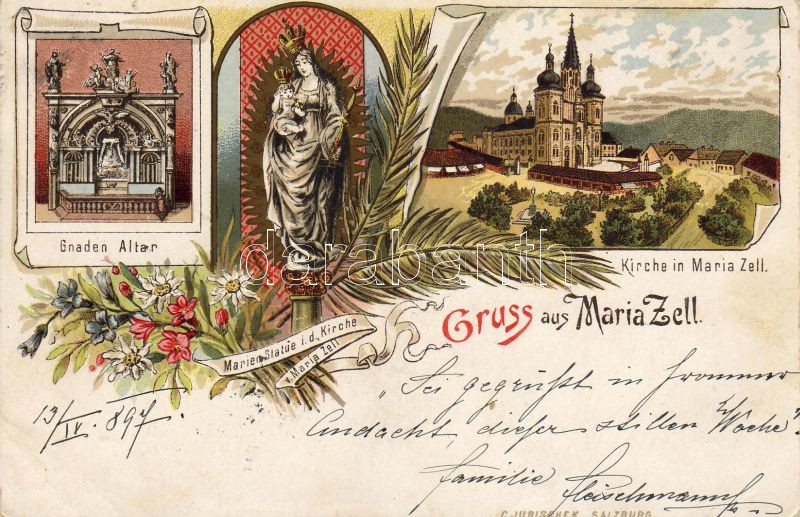 Gnaden Altar
Kirche in Maria Zell.
darabanth
Marien Statue i. d. Kirche
v. Maria Zell
Gruss aus Maria Zell.
13/IV. 897.
„Sei gegrüßt in frommer
Andacht, dieser stillen Woche"
Familie
Fleischmann
C. JURISCHEK, SALZBURG